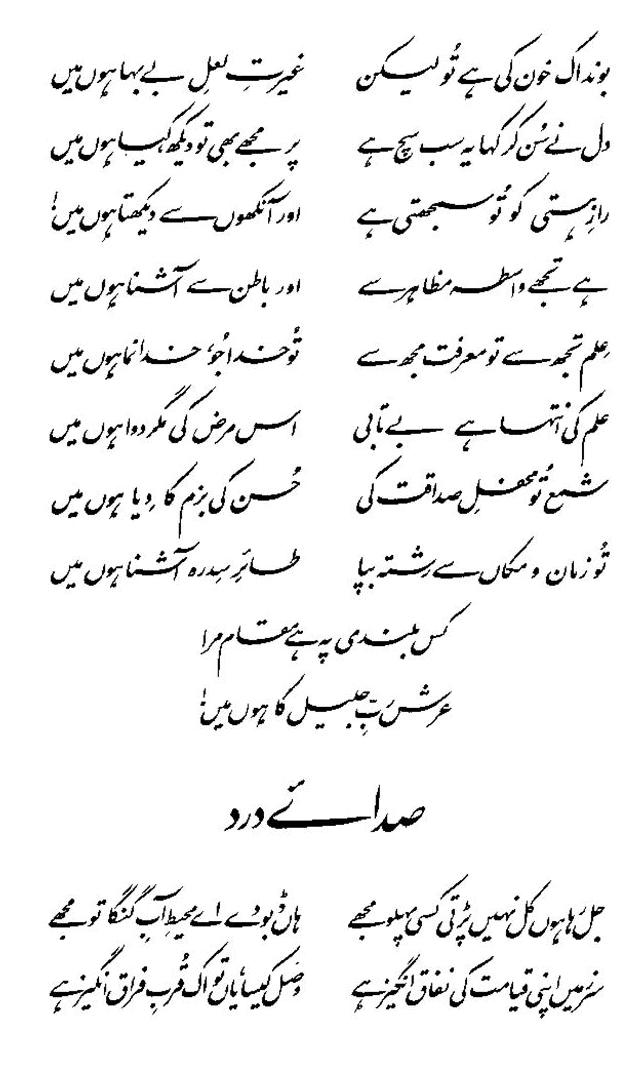 بوند اک خون کی ہے تُو لیکن غیرتِ لعلِ بے بہا ہوں میں
دل نے سُن کر کہا یہ سب سچ ہے پر مجھے بھی تو دیکھ کیا ہوں میں
رازِ ہستی کو تُو سمجھتی ہے اور آنکھوں سے دیکھتا ہوں میں!
ہے تجھے واسطہ مظاہر سے اور باطن سے آشنا ہوں میں
عِلم تجھ سے تو معرفت مجھ سے تُو خدا جُو، خدا نما ہوں میں
علم کی انتہا ہے بے تابی اس مرض کی مگر دوا ہوں میں
شمع تُو محفلِ صداقت کی حُسن کی بزم کا دِیا ہوں میں
تُو زمان و مکاں سے رشتہ بپا طائرِ سِدرہ آشنا ہوں میں
کس بلندی پہ ہے مقام مرا
عرش ربِّ جلیل کا ہوں میں!
صدائے درد
جل رہا ہوں کل نہیں پڑتی کسی پہلو مجھے ہاں ڈبو دے اے محیطِ آبِ گنگا تو مجھے
سرزمیں اپنی قیامت کی نفاق انگیز ہے وصل کیسا یاں تو اک قُربِ فراق انگیز ہے